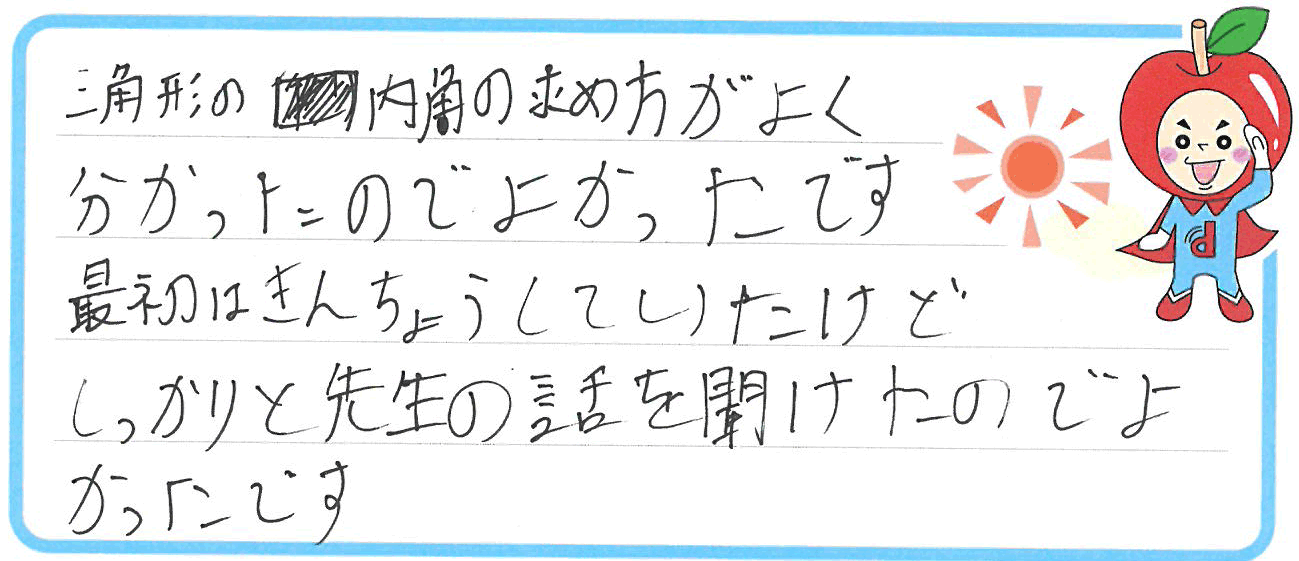 三角形の内角の求め方がよく
分かったのでよかったです
最初はきんちょうしていたけど
しっかりと先生の話を聞けたのでよ
かったです